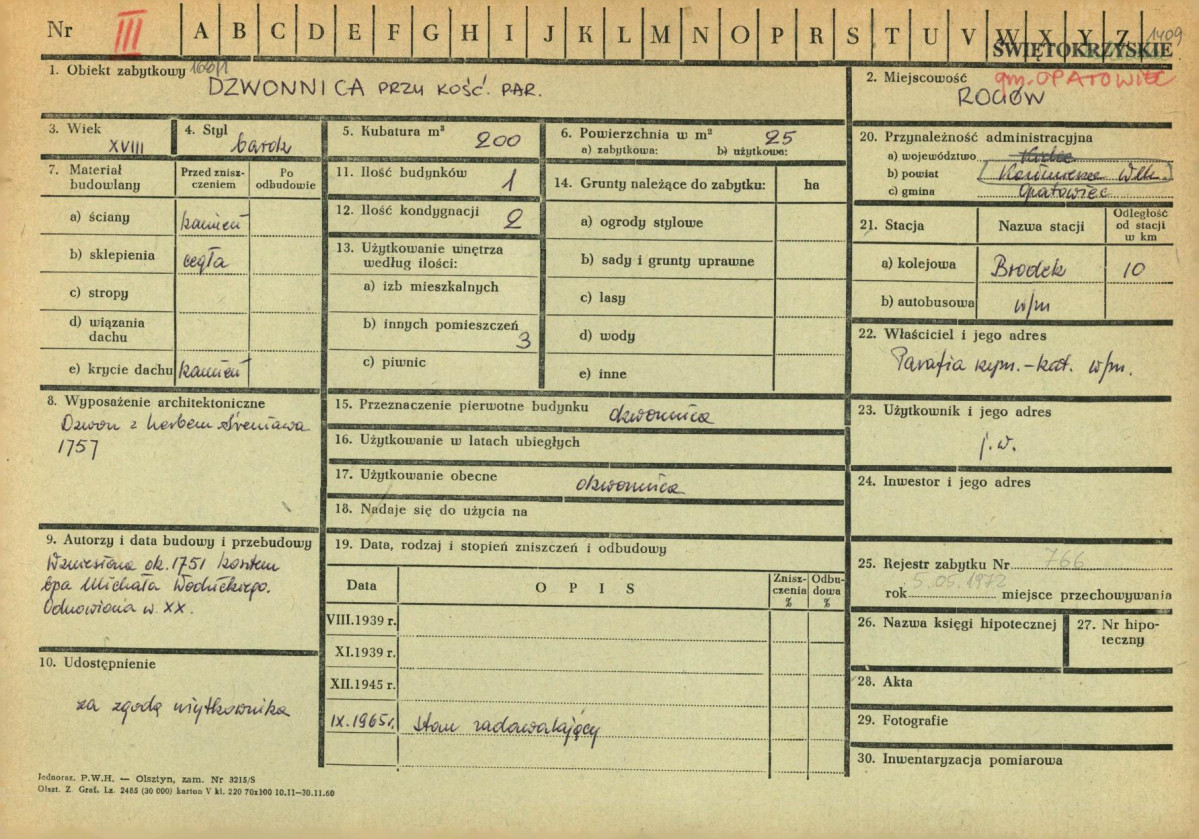 Nr III A B C D E F G H I J K L M N O P R S T U V W X Y Z 1409
ŚWIĘTOKRZYSKIE
1. Obiekt zabytkowy
DZWONNICA PRZY KOŚĆ. PAR.
2. Miejscowość gm. OPATOWIEC
ROGÓW
3. Wiek
XVIII
4. Styl
barok
5. Kubatura m³ 200
6. Powierzchnia w m² 25
a) zabytkowa: b) użytkowa:
7. Materiał budowlany
Przed zniszczeniem
Po odbudowie
a) ściany kamień
b) sklepienia cegła
c) stropy
d) wiązania dachu
e) krycie dachu kamień
8. Wyposażenie architektoniczne
Dzwon z herbem Śreniawa
1757
9. Autorzy i data budowy i przebudowy
Wzniesiona ok. 1751 kosztem
bpa Michała Wodzickiego.
Odnowiona w. XX.
10. Udostępnienie
za zgodą użytkownika
11. Ilość budynków 1
12. Ilość kondygnacji 2
13. Użytkowanie wnętrza
według ilości:
a) izb mieszkalnych
b) innych pomieszczeń
3
c) piwnic
14. Grunty należące do zabytku: ha
a) ogrody stylowe
b) sady i grunty uprawne
c) lasy
d) wody
e) inne
15. Przeznaczenie pierwotne budynku dzwonnica
16. Użytkowanie w latach ubiegłych
17. Użytkowanie obecne dzwonnica
18. Nadaje się do użycia na
19. Data, rodzaj i stopień zniszczeń i odbudowy
Data
O P I S
Zniszczenia %
Odbudowa %
VIII.1939 r.
XI.1939 r.
XII.1945 r.
IX.1965 r. stan zadawalający
20. Przynależność administracyjna
a) województwo Kielce
b) powiat Kazimierza Wlk.
c) gmina Opatowiec
21. Stacja
Nazwa stacji
Odległość od stacji w km
a) kolejowa Brodek 10
b) autobusowa w/m
22. Właściciel i jego adres
Parafia rzym.-kat. w/m.
23. Użytkownik i jego adres
j.w.
24. Inwestor i jego adres
25. Rejestr zabytku Nr 766
5.05.1972
rok miejsce przechowywania
26. Nazwa księgi hipotecznej
27. Nr hipoteczny
28. Akta
29. Fotografie
30. Inwentaryzacja pomiarowa
Jednoraz. P.W.H. — Olsztyn, zam. Nr 3215/S
Olszt. Z. Graf. Lz. 2485 (30 000) karton V kl. 220 70x100 10.11—30.11.60